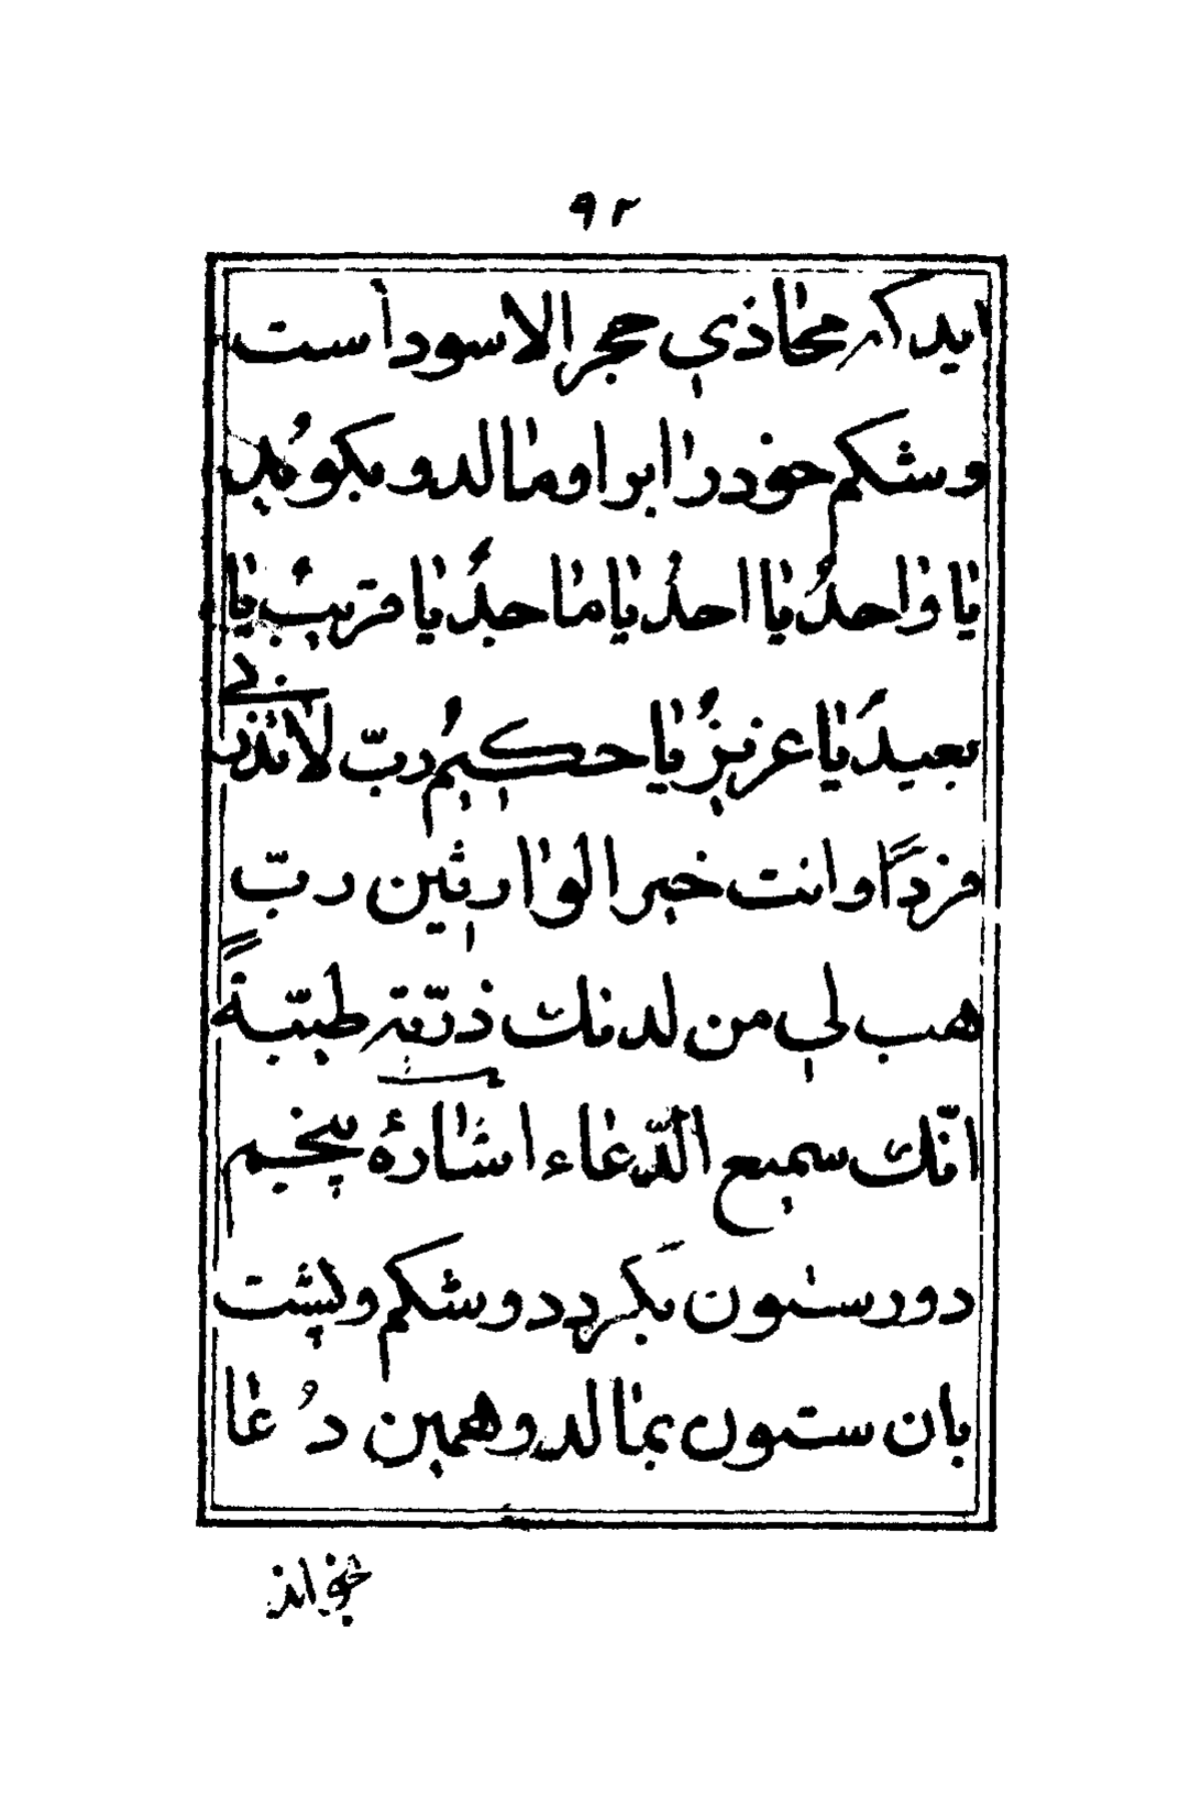 ۹۲
اید که محاذي حجر الاسود است
و شکم خود را براو مالد و بکوید
یا واحدُ یا احدُ یا ماجدُ یا قریبُ یا
بعیدُ یا عزیزُ یا حکیمُ ربّ لا تذرني
فردًا و انت خیر الوارثین ربّ
هب لي من لدنك ذرّیة طیّبةً
انّك سمیع الدّعاء اشارۀ پنجیم
دور ستون بکردد و شکم و پشت
بان ستون بمالد و همین دُعا
بخواند